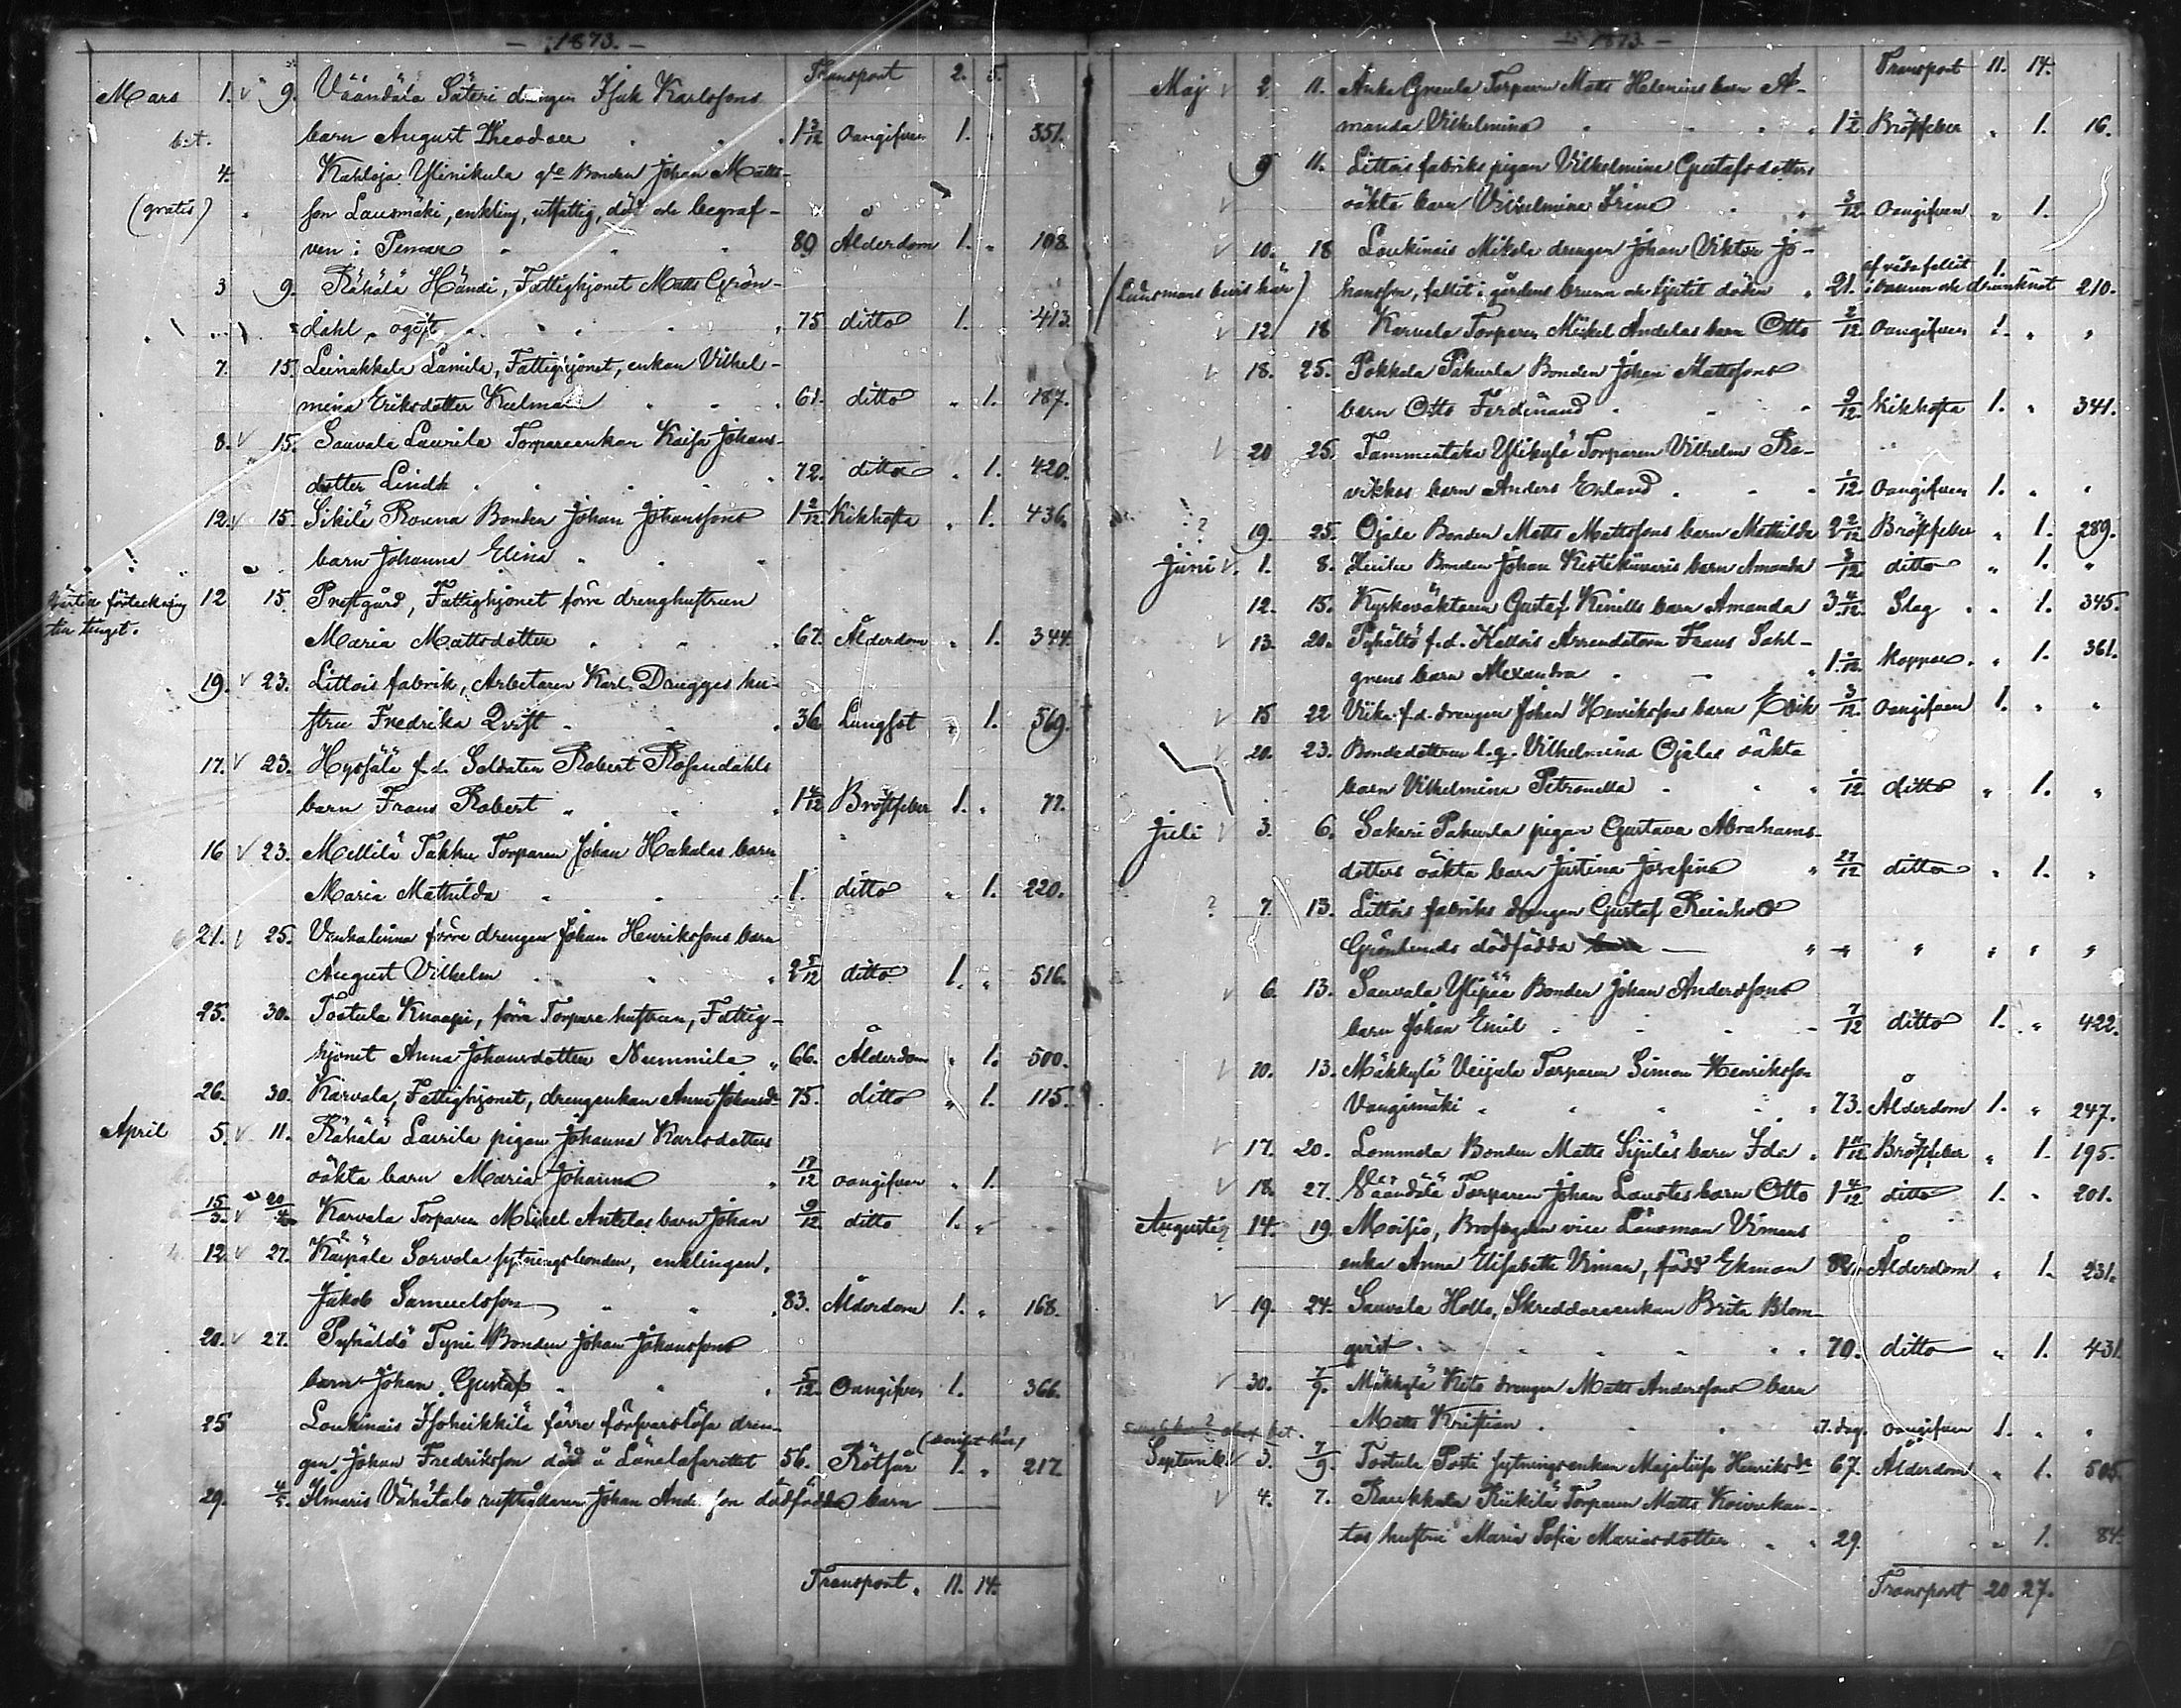 - 1873. -
Transport 2. 5.
Mars 1. v 9. Väändälä Säteri drengen Isak Karlssons
bet. barn August Theodor 1 3/12 oangifven 1. " 351.
4. Karloja Ylinikula gle Bonden Johan Matts-
(gratis) son Lausmäki, enkling, utfattig, död och begraf-
ven i Pemar " 89 Ålderdom 1. " 108.
3 9. Rähälä Händi, Fattighjonet Matts Grön-
dahl, ogift 75 ditto 1. " 413.
7. 15. Leinakkala Lamila, Fattighjonet, enkan Vilhel-
mina Eriksdotter Kulman 61. ditto " 1. 187.
8. v 15. Sauvala Laurila Torpareenkan Kaisa Johans-
dotter Lindh 72. ditto " 1. 420.
12. v 15. Sikilä Rouna Bonden Johan Johanssons 1 2/12 Kikhosta " 1. 436.
barn Johanna Elina
förteckning 12 15. Prestgård, Fattighjonet förre drenghustrun
till tinget. Maria Mattsdotter 67. Ålderdom " 1. 344.
19. v 23. Littois fabrik, Arbetaren Karl Drugges hu-
stru Fredrika Qvist 36 Lungsot " 1. 569.
17. v 23. Hyssälä f.d. Soldaten Robert Rosendahls
barn Frans Robert " 1 4/12 Bröstfeber 1. " 77.
16 v 23. Mellilä Takku Torparen Johan Hakalas barn
Maria Mathilda 1. ditto " 1. 220.
21. v 25. Vanhalinna förre drengen Johan Henrikssons barn
August Vilhelm " 2 5/12 ditto 1. " 516.
25. 30. Tostula Knaapi, förra Torpare hustrun, Fattig-
hjonet Anna Johansdotter Nummila " 66. Ålderdom " 1. 500.
26. 30. Karvala, Fattighjonet, drengenkan Anna Johansdr 75. ditto " 1. 115.
April 5. v 11. Rähälä Laurila pigan Johanna Karlsdotters
oäkta barn Maria Johanna 17/12 oangifven " 1.
15/3. v 20/4. Karvala Torparen Mickel Antelas barn Johan 9/12 ditto 1. "
12. v 27. Kaipale Sorvola sytningsbonden, enklingen,
Jakob Samuelsson " " 83. Ålderdom 1. " 168.
20. v 27. Pyhältö Tyni Bonden Johan Johanssons
barn Johan Gustaf " 5/12 Oangifven 1. 366.
25 Loukinais Isoheikkilä förre försvarslösa dren-
gen Johan Fredriksson död å Länelasarettet 56. Rötsår (beviset här) 1. " 217.
29. 4/5. Ilmaris Vähätalo rusthållaren Johan Andersson dödfödda barn
Transport. 11. 14.
- 1873 -
Transport 11. 14.
Maj v 2. 11. Auka Greula Torparen Matts Helenius barn A-
manda Vilhelmina 1 1/2 Bröstfeber " 1. 16.
9 11. Littois fabriks pigan Vilhelmina Gustafsdotters
v oäkta barn Vilhelmina Irene 3/12 oangifven " 1.
v 10. 18 Loukinais Mikola drengen Johan Viktor Jo-
(Länsmans bevis här) hansson, fallit i gårdens brunn och ljutit döden " 21. af våda fallit i brunn och drunknat 1. 210.
v 12. 18 Karvala Torparen Mickel Andelas barn Otto 2/12 oangifven 1. " "
v 18. 25. Pokkala Pakurla Bonden Johan Mattssons
barn Otto Ferdinand 9/12 Kikhosta 1. " 341.
v 20 25. Tammiataka Ylikylä Torparen Vilhelm Ra-
vikkas barn Anders Erland 1/12 oangifven 1. " "
? 19. 25. Ojala Bonden Matts Mattssons barn Mathilda 2 2/12 Bröstfeber " 1. 289.
Juni v. 1. 8. Bonden Johan barn Amanda 3/12 ditto " 1. "
12. 15. Kyrkovaktaren Gustaf Kinills barn Amanda 3 4/12 Slag " 1. 345.
v 13. 20. Pyhältö f.d. Kallois Arrendatorn Frans Sahl-
grens barn Alexandra 1 1/12 Koppor " 1. 361.
v 15 22 Viika f.d. drengen Johan Henrikssons barn Erik 3/12 oangifven 1. " "
v 20. 23. Bondedottren l.q. Vilhelmina Ojalas oäkta
barn Vilhelmina Petronella 1/12 ditto " 1. "
Juli v 3. 6. Sakari Pakurla pigan Gustava Abrahams-
dotters oäkta barn Justina Josefina " 27/12 ditto " 1. "
? 7. 13. Littois fabriks drengen Gustaf Reinhold
Grönlunds dödfödda barn — " " " " " "
v 6. 13. Sauvala Ylipää Bonden Johan Anderssons
barn Johan Emil 7/12 ditto 1. " 422.
v 10. 13. Mäkkylä Veijala Torparen Simon Henriksson
Vangismäki " " " 73. Ålderdom 1. " 247.
v 17. 20. Lommola Bonden Matts Sipiläs barn Ida " 1 11/12 Bröstfeber " 1. 195.
v 18. 27. Väändälä Torparen Johan Laustes barn Otto 1 4/12 ditto 1. " 201.
Augusti ? 14. 19. Moisio, Brofogden vice Länsman Vimans
enka Anna Elisabeth Viman, född Ekman Ålderdom " 1. 231.
v 19. 24. Sauvala Hollo, Skreddareenkan Brita Blom-
qvist " " " 70. ditto " 1. 431.
v 30. 7/9. Mäkkylä Kito drengen Matts Anderssons barn
bet. Matts Kristian 17. dag. oangifven 1. " "
Septemb. v 3. 7/9. Tostula Posti sytningsenkan Majalisa Henriksdr 67. Ålderdom " 1. 505.
v 4. 7. Raukkala Riikilä Torparen Matts Koivukan-
tos hustru Maria Sofia Mariasdotter " " 29. " 1. 84.
Transport 20 27.